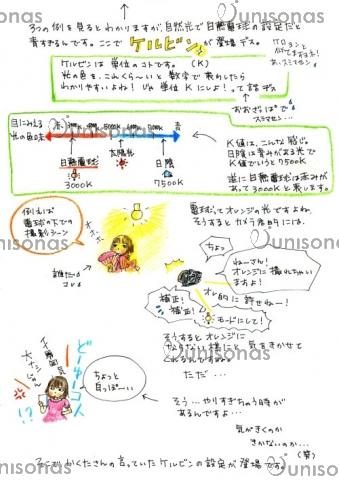 3つの例を見るとわかりますが、自然光で白熱電球の設定だと
青すぎるんです。ここで ケルビン が登場デス。
ケロヨンと
ケルビンは単位のコトです。(K)
光の色を、これくら〜いと数字で表わしたら
わかりやすいよね! じゃ単位Kにしよ!って話デス
おおざっぱで
スマセン…
目にみえる
光の色の味
赤
3000K
4000K
5000K
6000K
7000K
青
白熱電球
太陽光
日陰
3000K
7500K
K値は、こんな感じ。
日陰は青みがある光で
K値でいうと7500K
逆に白熱電球は赤みが
あって3000Kと表します。
例えば
電球の下での
撮影シーン
電球ってオレンジの光ですよね。
そうするとカメラ君的には、
ちょっ
ねーさん!
オレンジに撮れちゃい
ますよ!
オレ的に許せねー!
補正!
補正!
モードにして!
そうするとオレンジに
ならない様にと気をきかせて
くれるんですね
ただ…
そう…やりすぎちゃう時が
あるんですよ…
気がきくのか
きかないのか…
(笑)
ちょっと
青っぽーい
どーゆーコト
!?
そこでかくたさんの言っていたケルビンの設定が登場です。
Unisonas
Unisonas
Unisonas
Unisonas
Unisonas
Unisonas